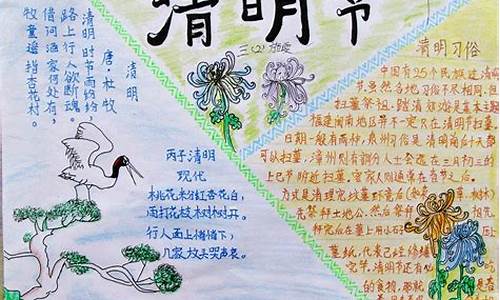 清明节
三(2)
清明
唐·杜牧
清明时节雨纷纷,
路上行人欲断魂。
借问酒家何处有,
牧童遥指杏花村。
丙子清明
现代
桃花米分红杏花白,
雨打花枝树树开。
行人面上悄悄下,
几家坟头哭声哀。
清明习俗
中国有25个民族过清明
节,虽然各地习俗不尽相同,但
扫墓祭祖、踏清郊游是基本主题
福建闽南地区并不一定只在清明节扫墓,
日期一般有两种,泉州习俗是清明前后十天都
可以扫墓,漳州则有部分人士会选在三月初三的
上巳节附近扫墓,客家人则通常在春节之后。
方式是清理完坟墓环境后
先祭拜土地公,然后祭拜
拜完后在墓上用小石
墓纸,代表已经修缮
完节,清明节还有
的食物,那就